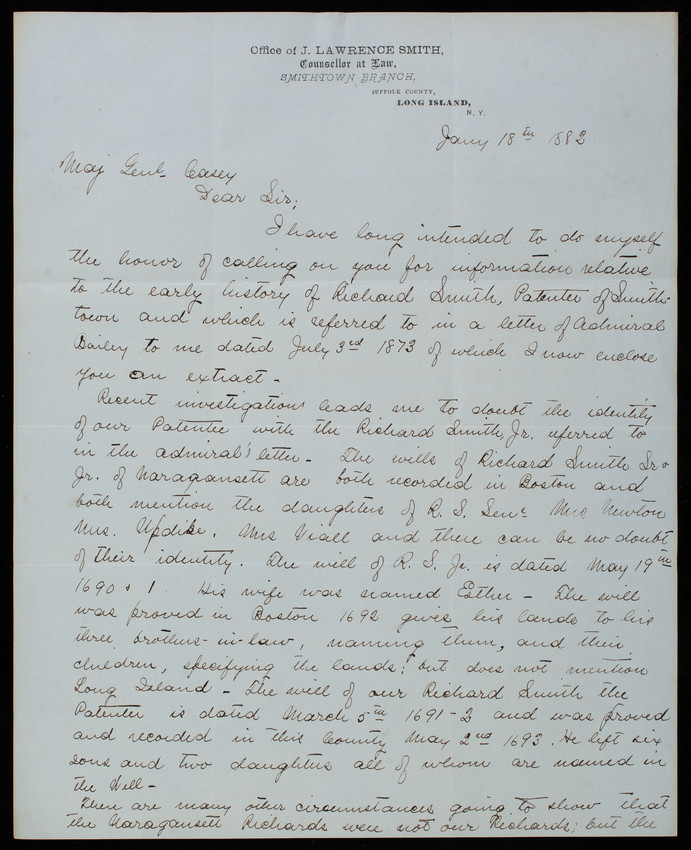 Office of J. LAWRENCE SMITH,
Counsellor at Law,
SMITHTOWN BRANCH,
SUFFOLK COUNTY,
LONG ISLAND,
N. Y.
Jany 18th 1882
Maj Genl Casey
Dear Sir;
I have long intended to do myself
the honor of calling on you for information relative
to the early history of Richard Smith, Patentee of Smith-
town and which is referred to in a letter of Admiral
Bailey to me dated July 3rd 1873 of which I now enclose
you an extract -
Recent investigations leads me to doubt the identity
of our Patentee with the Richard Smith, Jr. referred to
in the admiral's letter - The wills of Richard Smith Sr &
Jr. of Naragansett are both recorded in Boston and
both mention the daughters of R. S. Senr Mrs Newton
Mrs. Updike, Mrs Viall and there can be no doubt
of their identity. The will of R. S. Jr. is dated May 19th
1690 & 1 His wife was named Esther - The will
was proved in Boston 1692 gives his lands to his
three brothers-in-law, naming them, and their
children, specifying the lands; but does not mention
Long Island - The will of our Richard Smith the
Patentee is dated March 5th 1691-2 and was proved
and recorded in this County May 2nd 1693. He left six
sons and two daughters all of whom are named in
the Will -
There are many other circumstances going to show that
the Naragansett Richards were not our Richards; but the